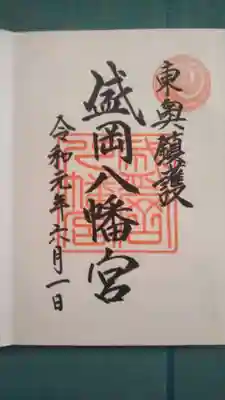 東奥鎮護
盛岡八幡宮
令和元年六月一日